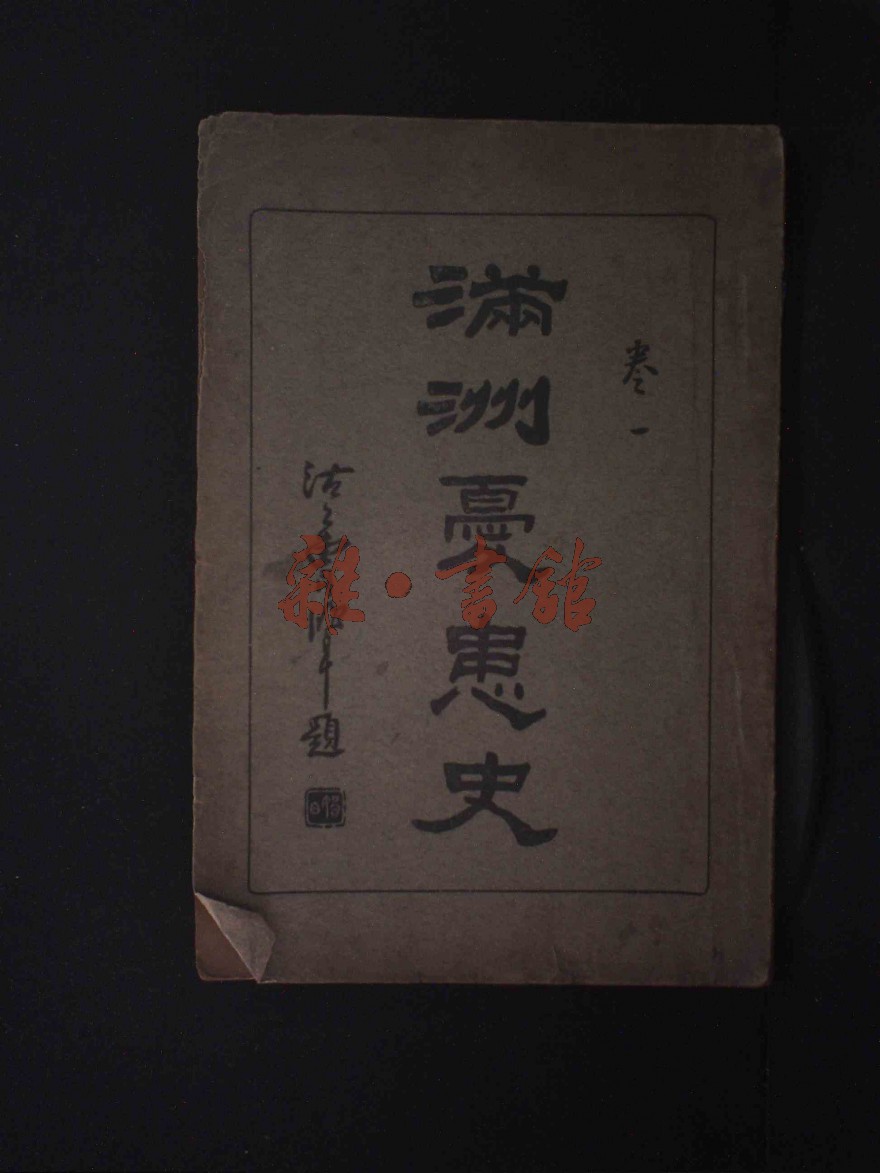 卷一
滿洲憂患史
沽
題
雜·書館